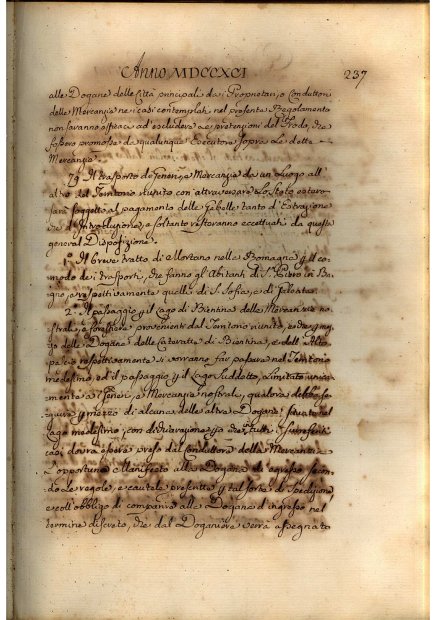 Anno MDCCXCI
237
alle Dogane delle Città principali da i Proprietarj, o Conduttori
delle Mercanzie ne i casi contemplati nel presente Regolamento
non saranno efficaci ad escludere le pretenzioni del Frodo, che
fossero promosse da qualunque Esecutore sopra le dette
Mercanzie.
Il trasporto de Generi, e Mercanzie da un Luogo all'
altro del Territorio riunito con attraversare lo Stato estero
sarà soggetto al pagamento delle Gabelle tanto d'Estrazione
che d'Introduzione, e soltanto resteranno eccettuati da questa
general Disposizione.
1. Il breve tratto di nella Romagna il co
modo de i trasporti, che fanno gli Abitanti di S. Piero in Ba
gno, e respettivamente quelli di S. Sofia, e di
2. Il passaggio il Lago di Bientina delle Mercanzie no
strali, e forestiere provenienti dal Territorio riunito, e che mez
zo delle Dogane delle Cateratte di Bientina, e dell' Alto
pascio respettivamente si vorranno far passare nel Territorio
medesimo, ed il passaggio il Lago suddetto, limitato unica
mente a i Generi, e Mercanzie nostrali, qualora debba se
guire mezzo di alcuna delle altre Dogane situate nel
Lago medesimo; con dichiarazione che in tutti i suddetti
casi dovrà essere preso dal Conduttore della Mercanzia
l'opportuno Manifesto alla Dogana di egresso secon
do le regole, e cautele prescritte tal sorte di Spedizione
e coll'obbligo di comparire alla Dogana d'ingresso nel
termine discreto, che dal Doganiere verrà assegnato